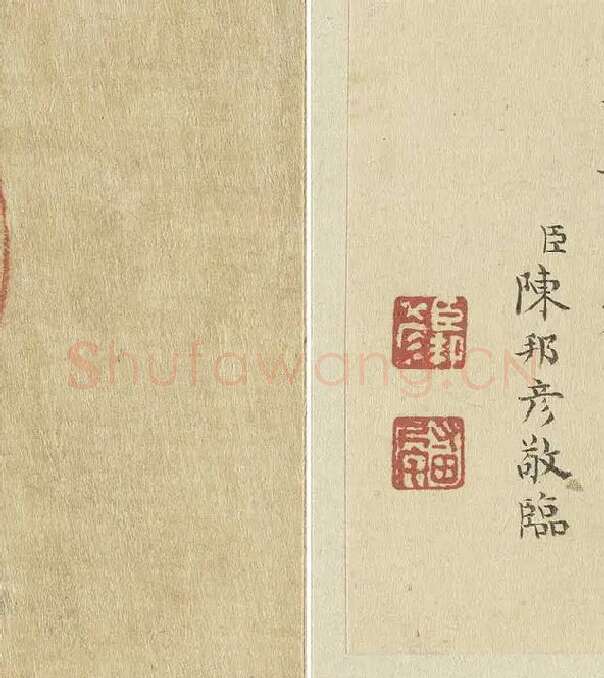 臣陳邦彥敬臨
Shufawang.CN